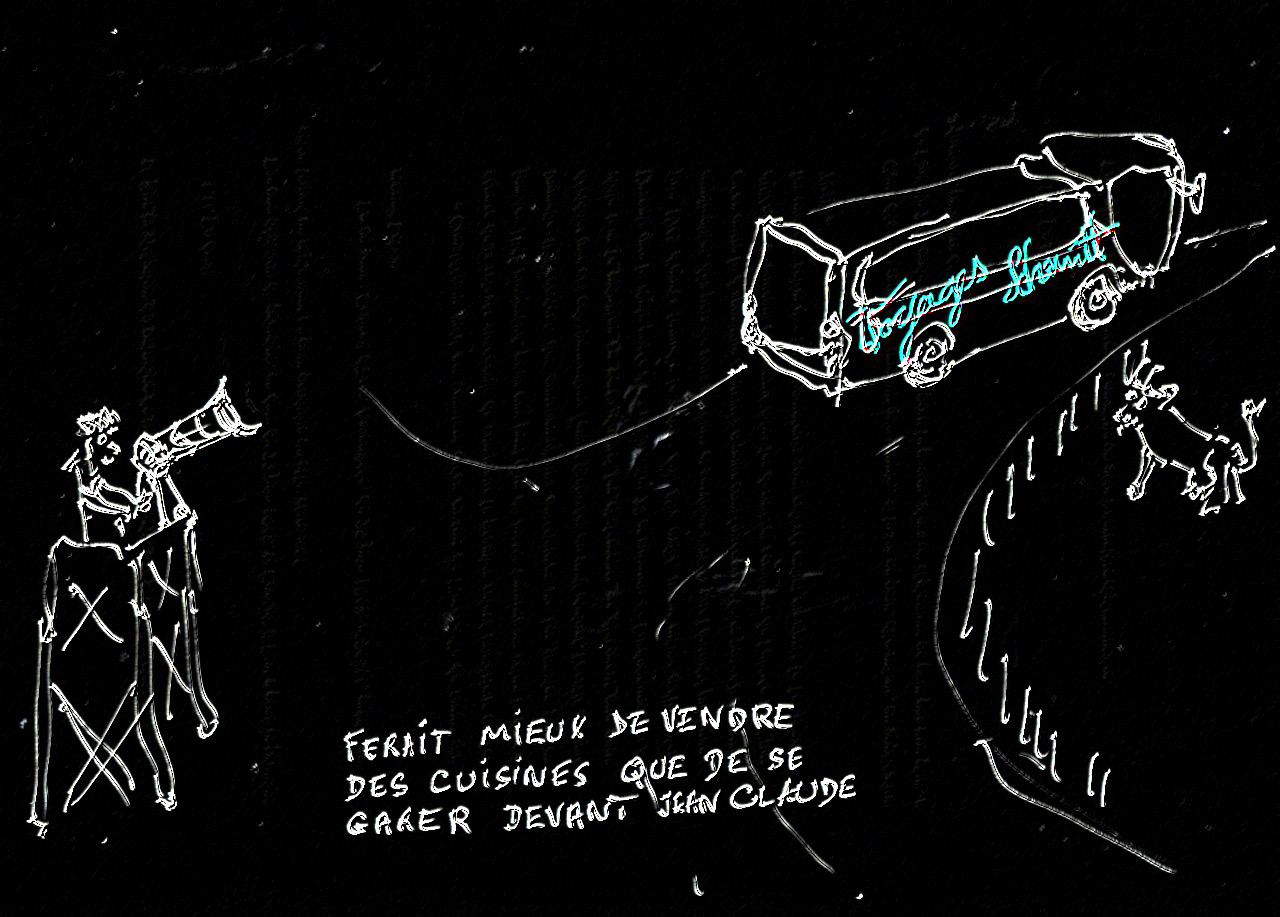 Voyages Shmitt
FERAIT MIEUX DE VENDRE
DES CUISINES QUE DE SE
GARER DEVANT JEAN CLAUDE